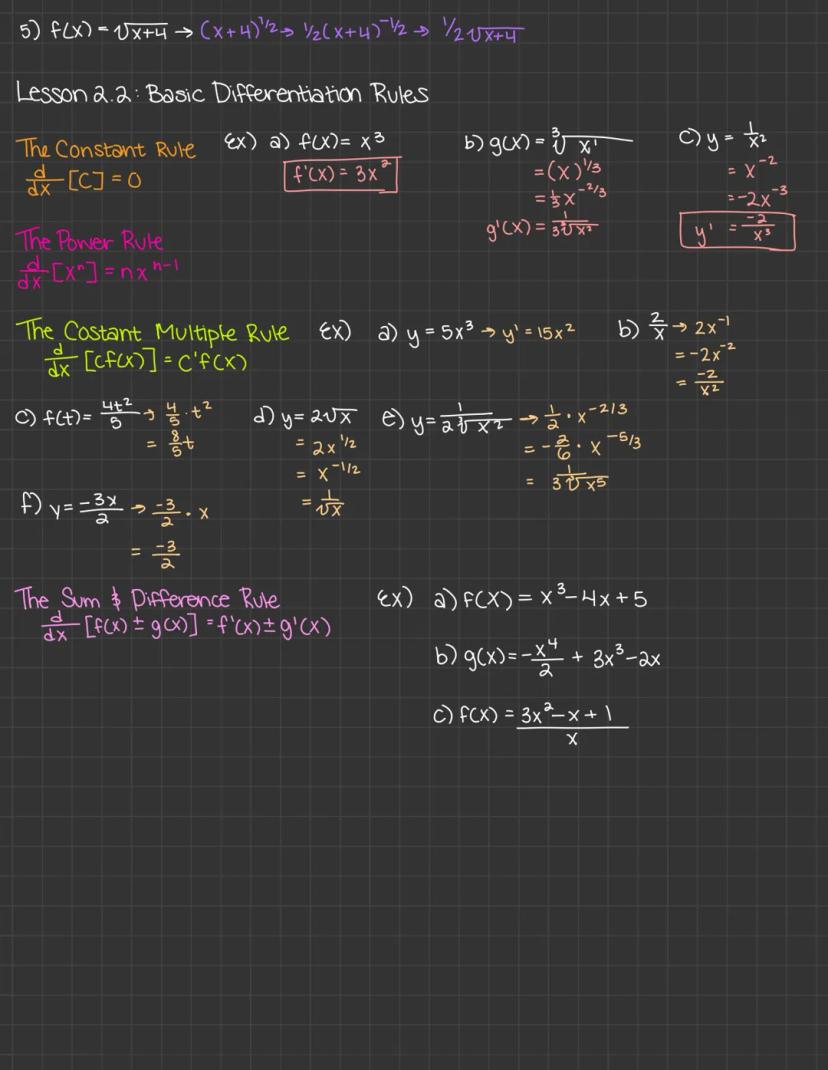 5) f(x) = √x+4 → (x+4)^1/2 → 1/2(x+4)^-1/2 → 1/2√x+4
Lesson 2.2: Basic Differentiation Rules
The Constant Rule
d/dx [C] = 0
Ex) a) f(x) = x³
f'(x) = 3x²
b) g(x) = ³√x¹
= (x)^1/3
= 1/3 x^-2/3
g'(x) = 1/3³√x²
c) y = 1/x²
= x^-2
= -2x^-3
y' = -2/x³
The Power Rule
d/dx [xⁿ] = nx^n-1
The Costant Multiple Rule
d/dx [cf(x)] = C'f(x)
Ex) a) y = 5x³ → y' = 15x²
b) 2/x → 2x^-1
= -2x^-2
= -2/x²
c) f(t) = 4t²/5 → 4/5 · t²
= 8/5 t
d) y = 2√x
= 2x^1/2
= x^-1/2
= 1/√x
e) y = 1/2³√x² → 1/2 · x^-2/3
= -2/6 · x^-5/3
= 1/3³√x5
f) y = -3x/2 → -3/2 · x
= -3/2
The Sum & Difference Rule
d/dx [f(x) ± g(x)] = f'(x) ± g'(x)
Ex) a) f(x) = x³-4x+5
b) g(x) = -x⁴/2 + 3x³-2x
c) f(x) = 3x²-x+1/x